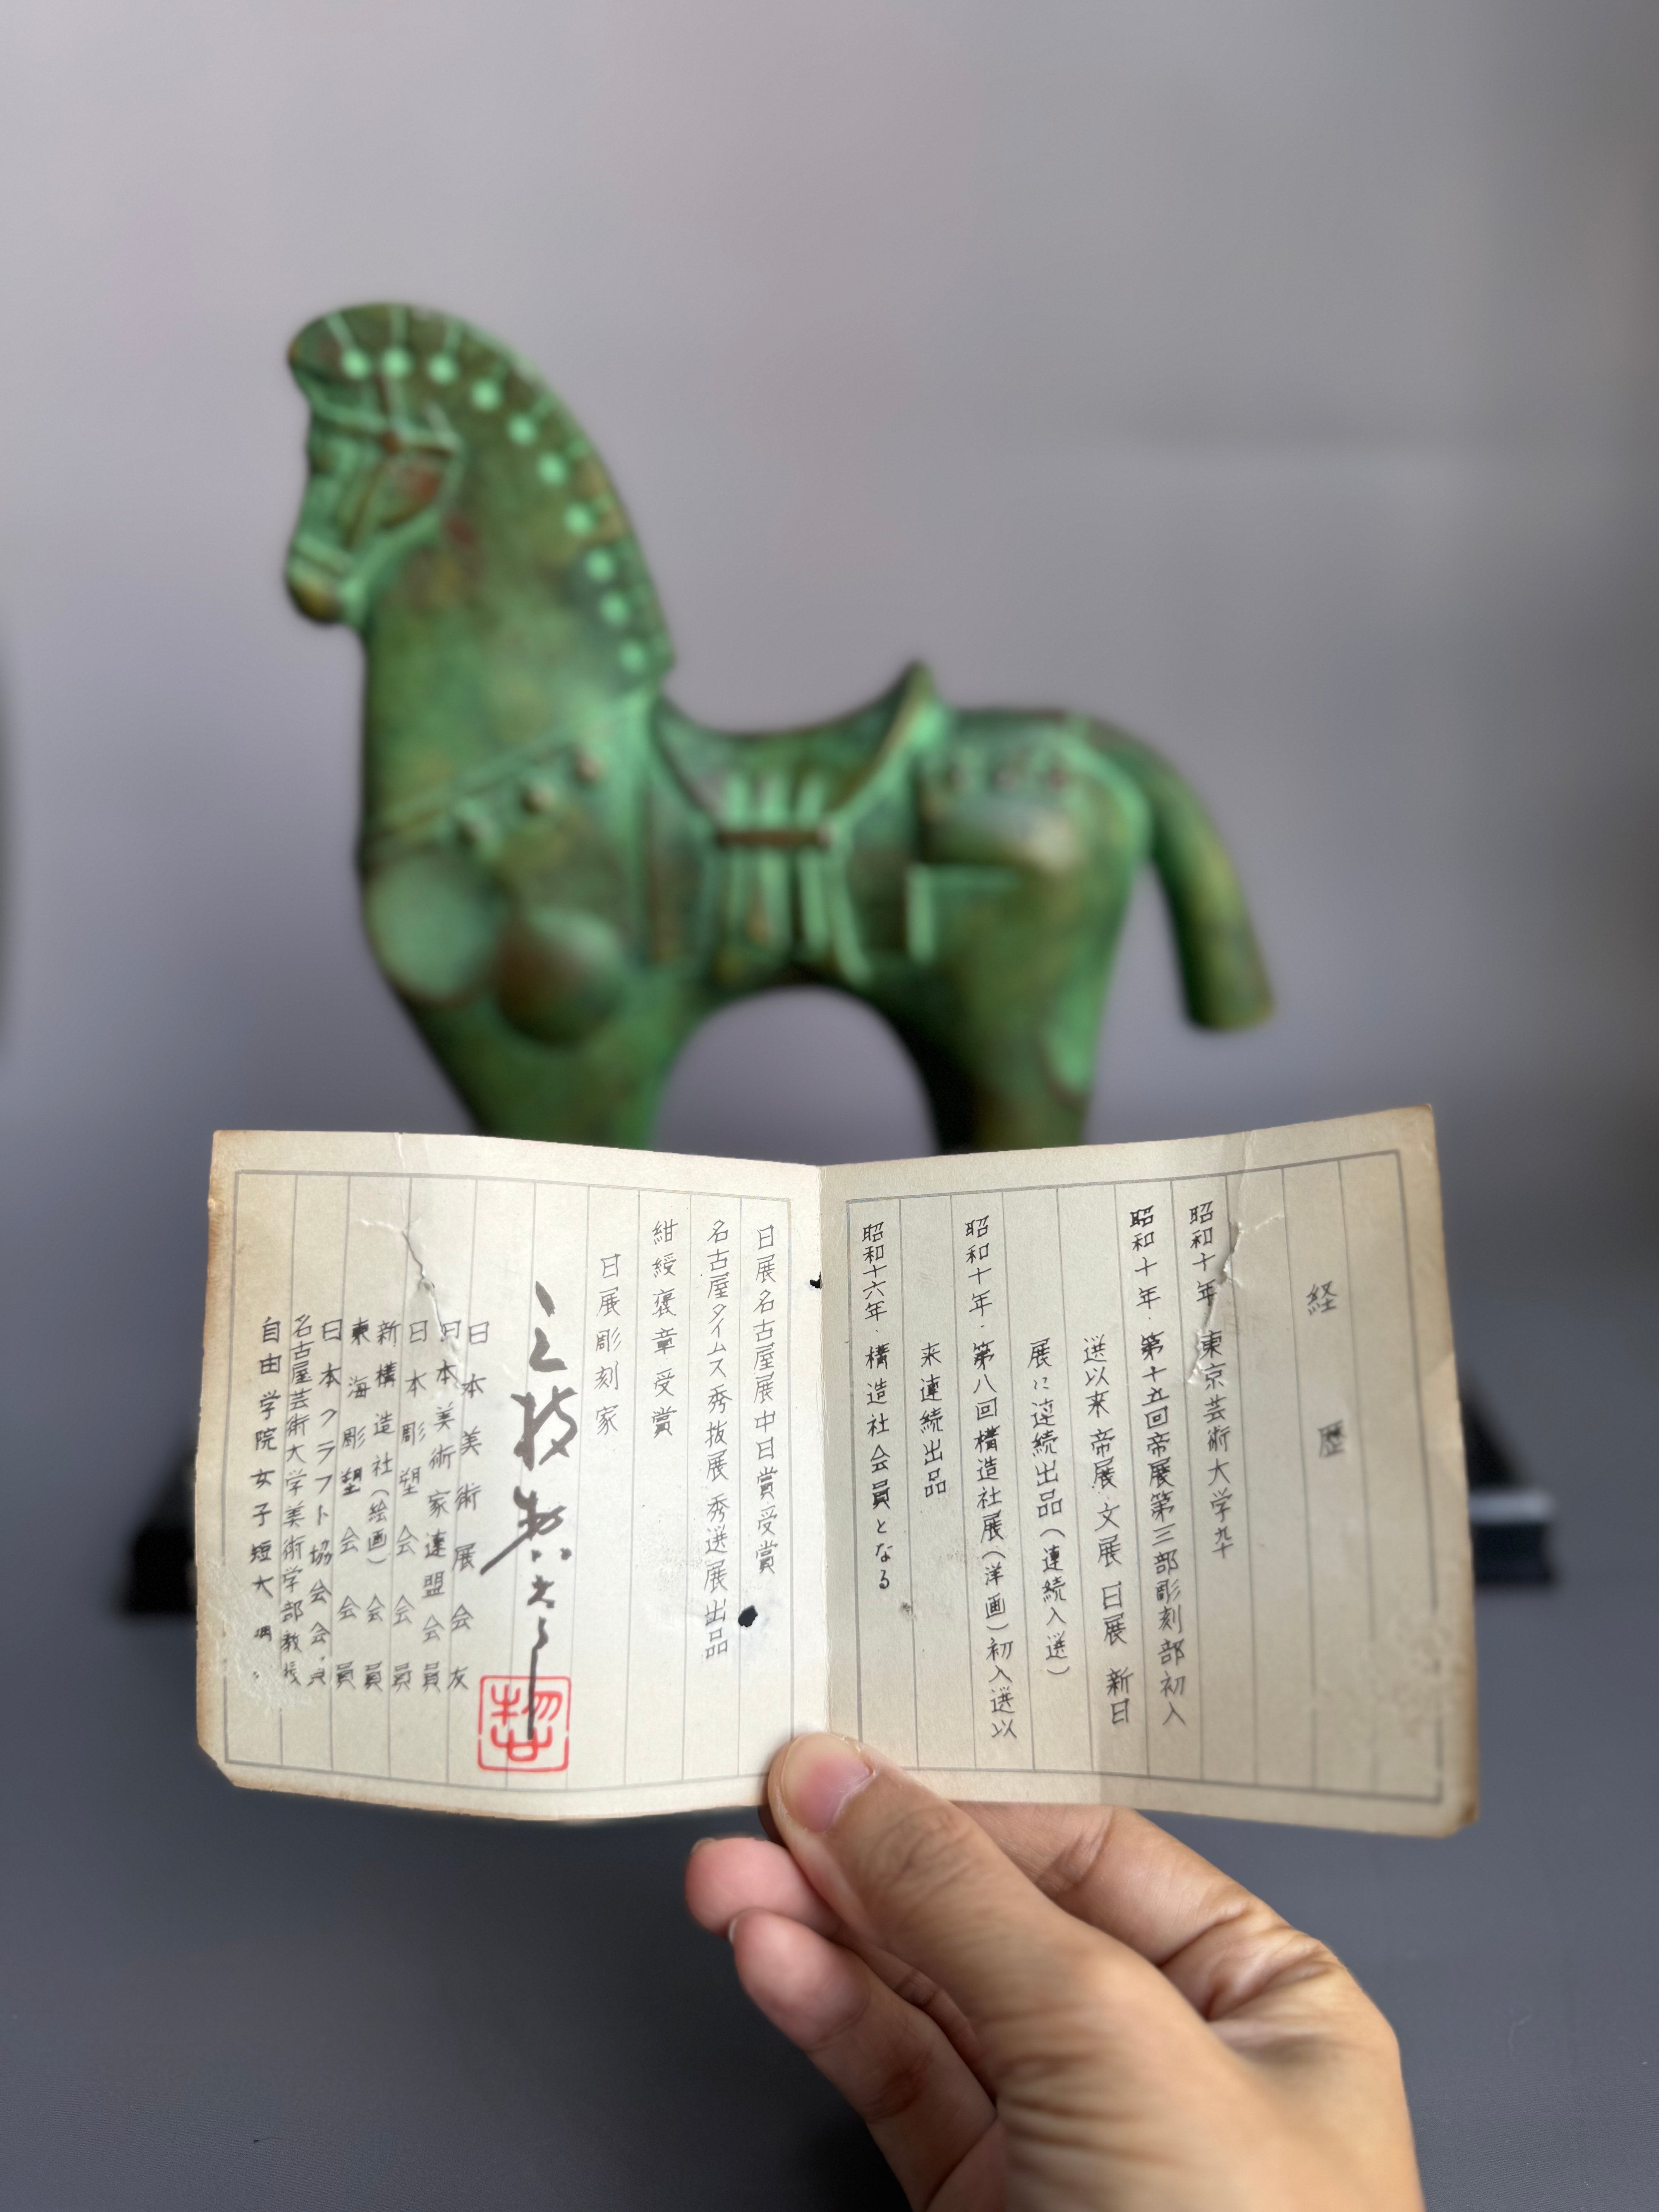 経歴
昭和十年 東京芸術大学卆
昭和十年.第十五回帝展第三部彫刻部初入
選以来 帝展.文展 日展 新日
展に連続出品(連続入選)
昭和十年.第八回構造社展(洋画)初入選以
来連続出品
昭和十六年.構造社会員となる
日展名古屋展中日賞受賞
名古屋タイムス秀抜展 秀選展出品
紺綬褒章受賞
日展彫刻家
日本美術展会友
日本美術家連盟会員
日本彫塑会会員
新構造社(絵画)会員
東海彫塑会会員
日本クラフト協会会員
名古屋芸術大学美術学部教授
自由学院女子短大